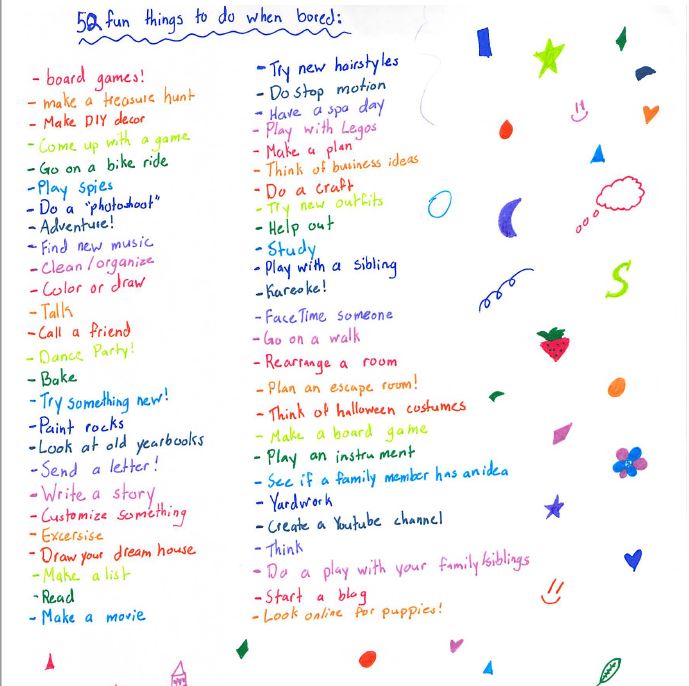 52 fun things to do when bored:
- board games!
- make a treasure hunt
- Make DIY decor
- Come up with a game
- Go on a bike ride
- Play spies
- Do a "photoshoot"
- Adventure!
- Find new music
- Clean/organize
- Color or draw
- Talk
- Call a friend
- Dance Party!
- Bake
- Try something new!
- Paint rocks
- Look at old yearbooks
- Send a letter!
- Write a story
- Customize something
- Excersise
- Draw your dream house
- Make a list
- Read
- Make a movie
- Try new hairstyles
- Do stop motion
- Have a spa day
- Play with Legos
- Make a plan
- Think of business ideas
- Do a craft
- Try new outfits
- Help out
- Study
- Play with a sibling
- Kareoke!
- FaceTime someone
- Go on a walk
- Rearrange a room
- Plan an escape room!
- Think of halloween costumes
- Make a board game
- Play an instrument
- See if a family member has an idea
- Yardwork
- Create a Youtube channel
- Think
- Do a play with your family/siblings
- Start a blog
- Look online for puppies!
S